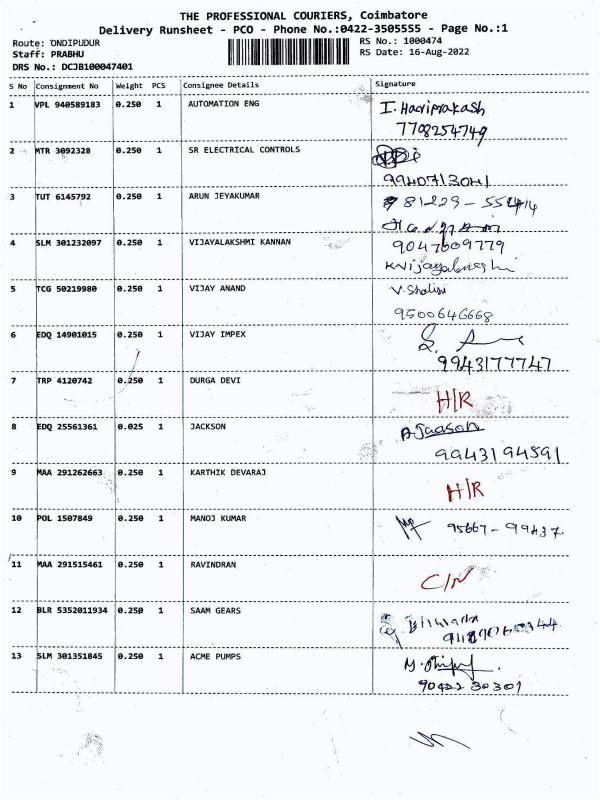 THE PROFESSIONAL COURIERS, Coimbatore
Delivery Runsheet - PCO - Phone No.:0422-3505555 - Page No.:1
Route: ONDIPUDUR
RS No.: 1000474
Staff: PRABHU
RS Date: 16-Aug-2022
DRS No.: DCJB100047401
S No Consignment No Weight PCS Consignee Details Signature
1 VPL 940589183 0.250 1 AUTOMATION ENG I. Hariprakash
7708254749
2 MTR 3092328 0.250 1 SR ELECTRICAL CONTROLS
9940713041
3 TUT 6145792 0.250 1 ARUN JEYAKUMAR 81229-55414
4 SLM 301232097 0.250 1 VIJAYALAKSHMI KANNAN 9047609779
5 TCG 50219980 0.250 1 VIJAY ANAND V. Shalini
9500646668
6 EDQ 14901015 0.250 1 VIJAY IMPEX
9943177747
7 TRP 4120742 0.250 1 DURGA DEVI H/R
8 EDQ 25561361 0.025 1 JACKSON A Jaason
9943194591
9 MAA 291262663 0.250 1 KARTHIK DEVARAJ H/R
10 POL 1507849 0.250 1 MANOJ KUMAR 95667-99437
11 MAA 291515461 0.250 1 RAVINDRAN C/N
12 BLR 5352011934 0.250 1 SAAM GEARS
13 SLM 301351845 0.250 1 ACME PUMPS
90422 30301